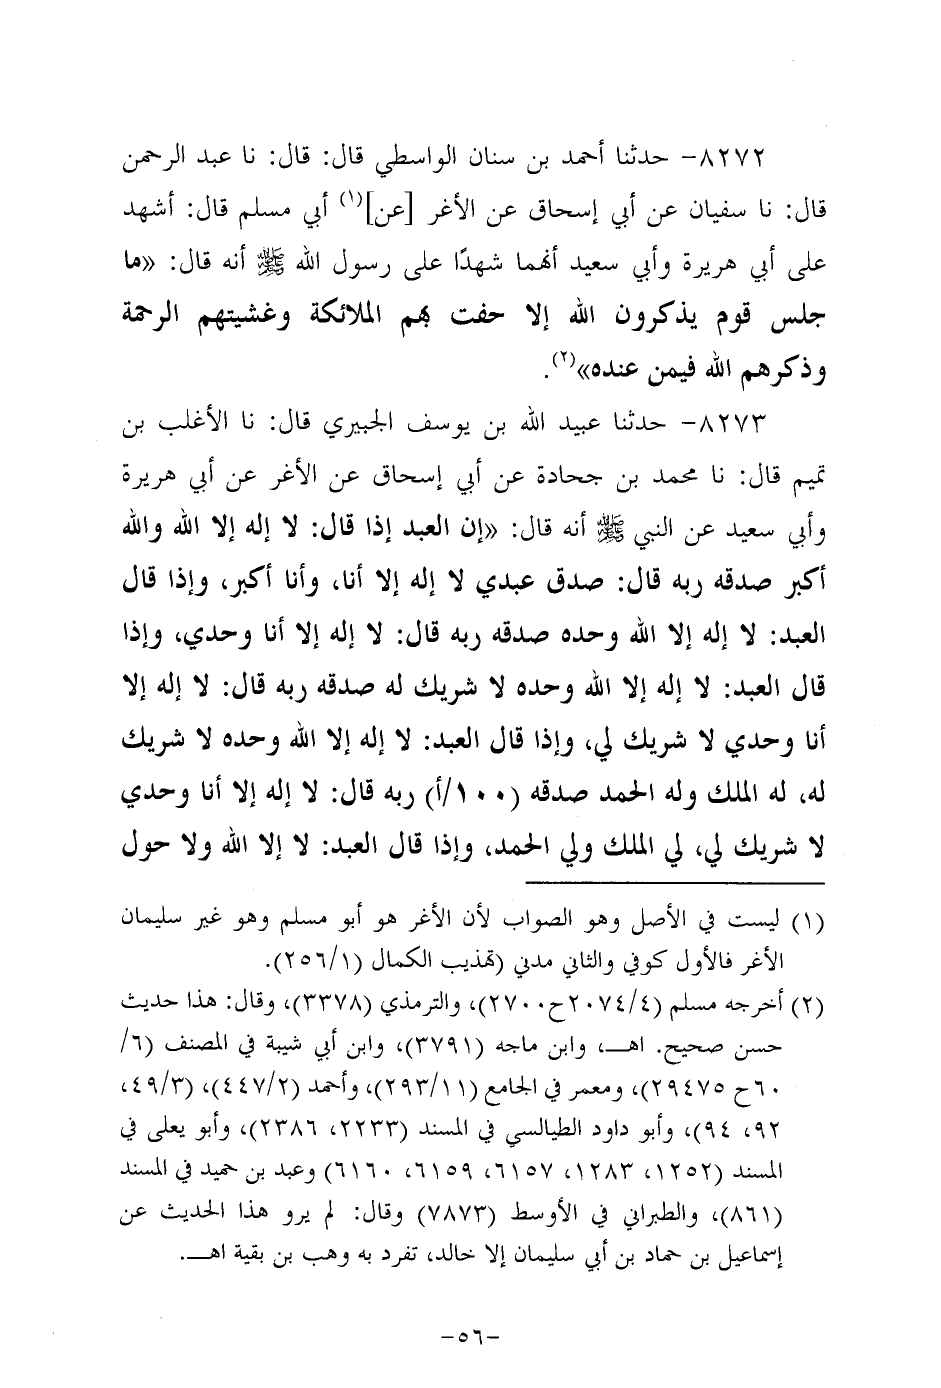 ٨٢٧٢- حدثنا أحمد بن سنان الواسطي قال: قال: نا عبد الرحمن
قال: نا سفيان عن أبي إسحاق عن الأغر [عن](١) أبي مسلم قال: أشهد
على أبي هريرة وأبي سعيد أنهما شهدًا على رسول الله ﷺ أنه قال: «ما
جلس قوم يذكرون الله إلا حفت بهم الملائكة وغشيتهم الرحمة
وذكرهم الله فيمن عنده»(٢).
٨٢٧٣- حدثنا عبيد الله بن يوسف الجبيري قال: نا الأغلب بن
تميم قال: نا محمد بن جحادة عن أبي إسحاق عن الأغر عن أبي هريرة
وأبي سعيد عن النبي ﷺ أنه قال: «إن العبد إذا قال: لا إله إلا الله والله
أكبر صدقه ربه قال: صدق عبدي لا إله إلا أنا، وأنا أكبر، وإذا قال
العبد: لا إله إلا الله وحده صدقه ربه قال: لا إله إلا أنا وحدي، وإذا
قال العبد: لا إله إلا الله وحده لا شريك له صدقه ربه قال: لا إله إلا
أنا وحدي لا شريك لي، وإذا قال العبد: لا إله إلا الله وحده لا شريك
له، له الملك وله الحمد صدقه (١٠٠/أ) ربه قال: لا إله إلا أنا وحدي
لا شريك لي، لي الملك ولي الحمد، وإذا قال العبد: لا إلا الله ولا حول
(١) ليست في الأصل وهو الصواب لأن الأغر هو أبو مسلم وهو غير سليمان
الأغر فالأول كوفي والثاني مدني (تهذيب الكمال (٢٥٦/١).
(٢) أخرجه مسلم (٢٠٧٤/٤ح٢٧٠٠)، والترمذي (٣٣٧٨)، وقال: هذا حديث
حسن صحيح. اهـ، وابن ماجه (٣٧٩١)، وابن أبي شيبة في المصنف (٦/
٦٠ح ٢٩٤٧٥)، ومعمر في الجامع (٢٩٣/١١)، وأحمد (٤٤٧/٢)، (٤٩/٣،
٩٢، ٩٤)، وأبو داود الطيالسي في المسند (٢٢٣٣، ٢٣٨٦)، وأبو يعلى في
المسند (١٢٥٢، ١٢٨٣، ٦١٥٧، ٦١٥٩، ٦١٦٠) وعبد بن حميد في المسند
(٨٦١)، والطبراني في الأوسط (٧٨٧٣) وقال: لم يرو هذا الحديث عن
إسماعيل بن حماد بن أبي سليمان إلا خالد، تفرد به وهب بن بقية اهـ.
-٥٦-